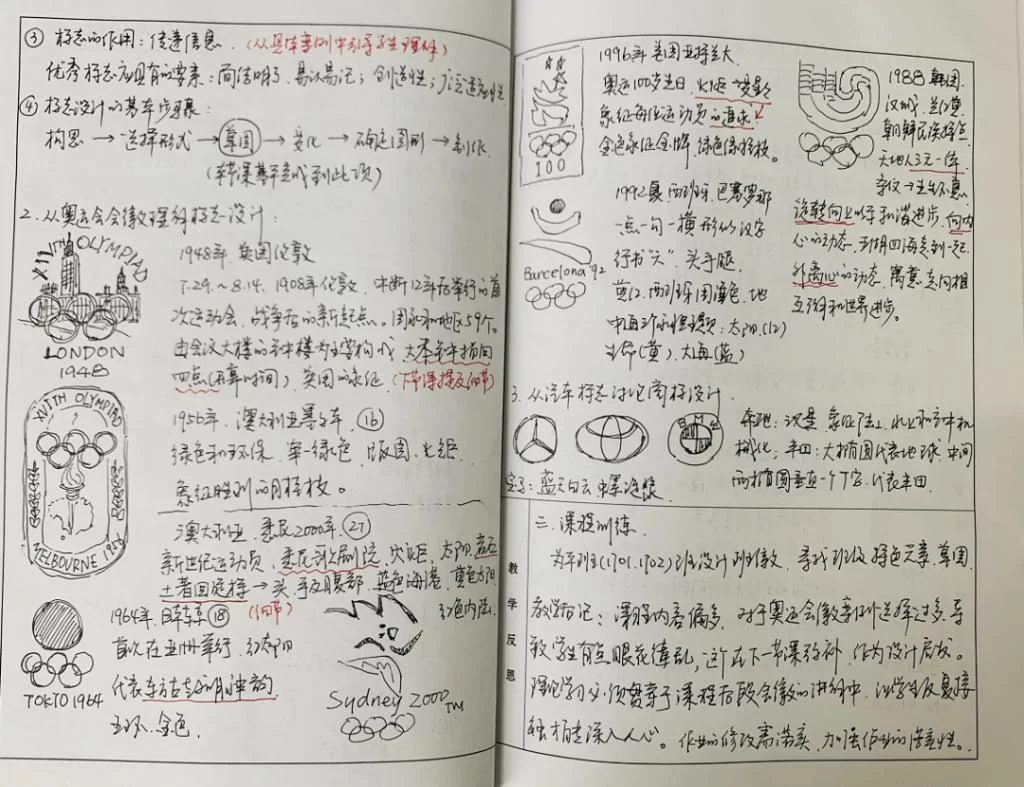 ③ 标志的作用：传递信息．（从具体事例中引导学生理解）
优秀标志应具有的要素：简洁明了、易认易记；创造性；广泛适应性
④ 标志设计的基本步骤：
构思 → 选择形式 → 草图 → 变化 → 确定图形 → 制作．
（本节课基本完成到此项）
2．从奥运会会徽理解标志设计：
XIVTH OLYMPIAD
LONDON
1948
1948年 英国伦敦
7.29～8.14. 1908年伦敦 中断12年后举行的首
次运动会，战争后的新起点。国家和地区59个。
由会议大楼的 为主要构成 大本钟中指向
四点（开幕时间） 英国的象征（下节课提及细节）
XVITH OLYMPIAD
MELBOURNE 1956
1956年．澳大利亚墨尔本 ⑯
绿色和环保，单一绿色、版图、火炬
象征胜利的月桂枝。
澳大利亚 悉尼2000年．㉗
新世纪运动员，悉尼歌剧院，火炬、太阳、岩石
土著回旋标 → 头、手及腹部，蓝色海港，黄色太阳
红色内陆．
Sydney 2000 TM
TOKYO 1964
1964年．日本东京 ⑱ （细节）
首次在亚洲举行．红太阳
代表东方古老的 精神
五环．金色．
100
1996年 美国亚特兰大
奥运100岁生日，火炬→变星
象征每位运动员的追求
金色象征金牌，绿色像桂枝。
1988 韩国
汉城，
朝鲜民族特色
天地人三元一体
旋转向上 和谐进步，向内
心的动态、五湖四海走到一起
外离心的动态，寓意走向相
互 和世界进步。
Barcelona '92
1992夏．西班牙．巴塞罗那
一点一勾一横形似汉字
行书"六"，头手腿
黄红．西班牙国旗色．地
中海 永恒主题：太阳(红)
生命(黄)、大海(蓝)
3．从汽车标志讨论商标设计．
BMW
奔驰：汉是 象征陆上、水上和空中机
械化；丰田：大椭圆代表地球，中间
两椭圆垂直一个T字．代表丰田．
宝马：蓝天白云
教学反思
二．课程训练．
为平班(1701.1702)班设计班徽．寻找班级特色元素．草图
教学后记：课程内容偏多，对于奥运会徽案例选择过多．导
致学生有点眼花缭乱，这个在下一节课弥补，作为设计启发。
理论学习必须贯穿于课程后段会徽的讲解中，让学生反复
深入人心。作业的修改需落实，加强作业的落实性。